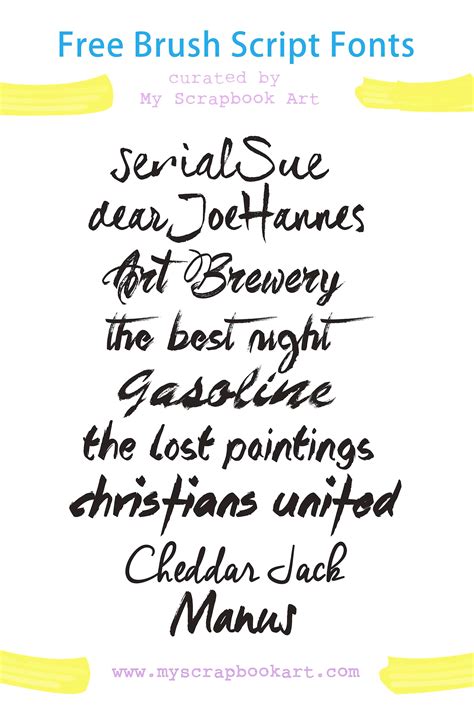 Free Brush Script Fonts
curated by
My Scrapbook Art
serialSue
dearJoeHannes
Art Brewery
the best night
Gasoline
the lost paintings
christians united
Cheddar Jack
Manus
www.myscrapbookart.com